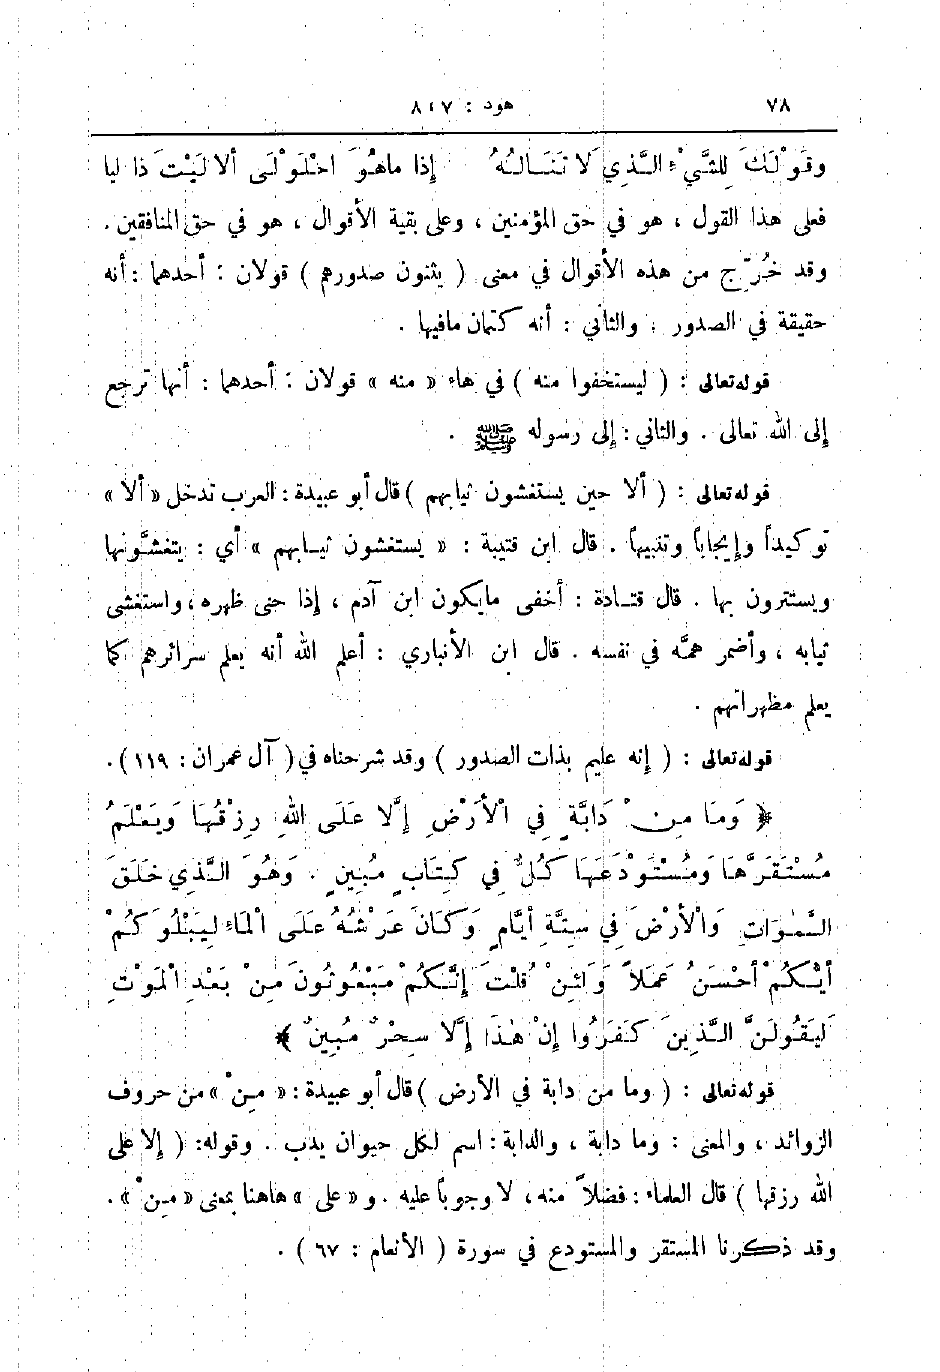 ٧٨ هود : ٧ ، ٨
وقَوْلَكَ لِلشَّيْءِ الَّذِي لَا تَنَالُهُ إِذا ماهُوَ احْلَوْلَى ألا لَيْتَ ذا ليا
فعلى هذا القول ، هو في حق المؤمنين ، وعلى بقية الأقوال ، هو في حق المنافقين .
وقد خُرِّج من هذه الأقوال في معنى ( يثنون صدورهم ) قولان : أحدهما : أنه
حقيقة في الصدور ؛ والثاني : أنه كتمان مافيها .
قوله تعالى : ( ليستخفوا منه ) في هاء « منه » قولان : أحدهما : أنها ترجع
إلى الله تعالى . والثاني : إلى رسوله ﷺ .
قوله تعالى : ( ألا حين يستغشون ثيابهم ) قال أبو عبيدة : العرب تدخل « ألا »
توكيداً وإيجاباً وتنبيهاً . قال ابن قتيبة : « يستغشون ثيابهم » أي : يتغشَّونها
ويستترون بها . قال قتادة : أخفى مايكون ابن آدم ، إذا حنى ظهره ، واستغشى
ثيابه ، وأضمر همَّه في نفسه . قال ابن الأنباري : أعلم الله أنه يعلم سرائرهم كما
يعلم مظهراتهم .
قوله تعالى : ( إنه عليم بذات الصدور ) وقد شرحناه في ( آل عمران : ١١٩ ) .
﴿ وَمَا مِنْ دَابَّةٍ فِي الْأَرْضِ إِلَّا عَلَى اللهِ رِزْقُهَا وَيَعْلَمُ
مُسْتَقَرَّهَا وَمُسْتَوْدَعَهَا كُلٌّ فِي كِتَابٍ مُبِينٍ . وَهُوَ الَّذِي خَلَقَ
السَّمٰوَاتِ وَالْأَرْضَ فِي سِتَّةِ أَيَّامٍ وَكَانَ عَرْشُهُ عَلَى الْمَاءِ لِيَبْلُوَكُمْ
أَيُّكُمْ أَحْسَنُ عَمَلاً وَلَئِنْ قُلْتَ إِنَّكُمْ مَبْعُوثُونَ مِنْ بَعْدِ الْمَوْتِ
لَيَقُولَنَّ الَّذِينَ كَفَرُوا إِنْ هٰذَا إِلَّا سِحْرٌ مُبِينٌ ﴾
قوله تعالى : ( وما من دابة في الأرض ) قال أبو عبيدة : « مِنْ » من حروف
الزوائد ، والمعنى : وما دابة ، والدابة : اسم لكل حيوان يدب . وقوله : ( إلا على
الله رزقها ) قال العلماء : فضلاً منه ، لا وجوباً عليه . و « على » هاهنا بمعنى « مِنْ » .
وقد ذكرنا المستقر والمستودع في سورة ( الأنعام : ٦٧ ) .